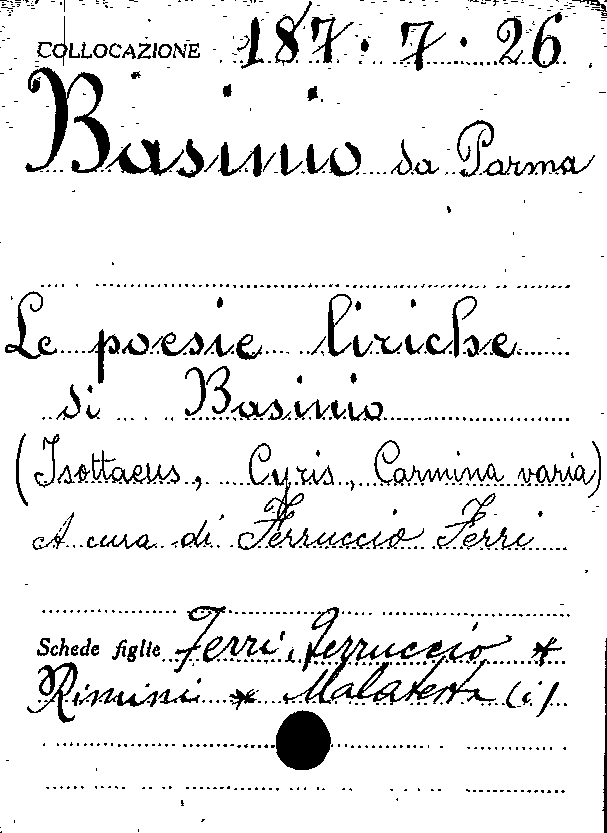 COLLOCAZIONE 187.7.26
Basinio da Parma
Le poesie liriche
di Basinio
(Isottaeus, Cyris, Carmina varia)
A cura di Ferruccio Ferri
Schede figlie Ferri, Ferruccio *
Rimini * Malatesta (i)